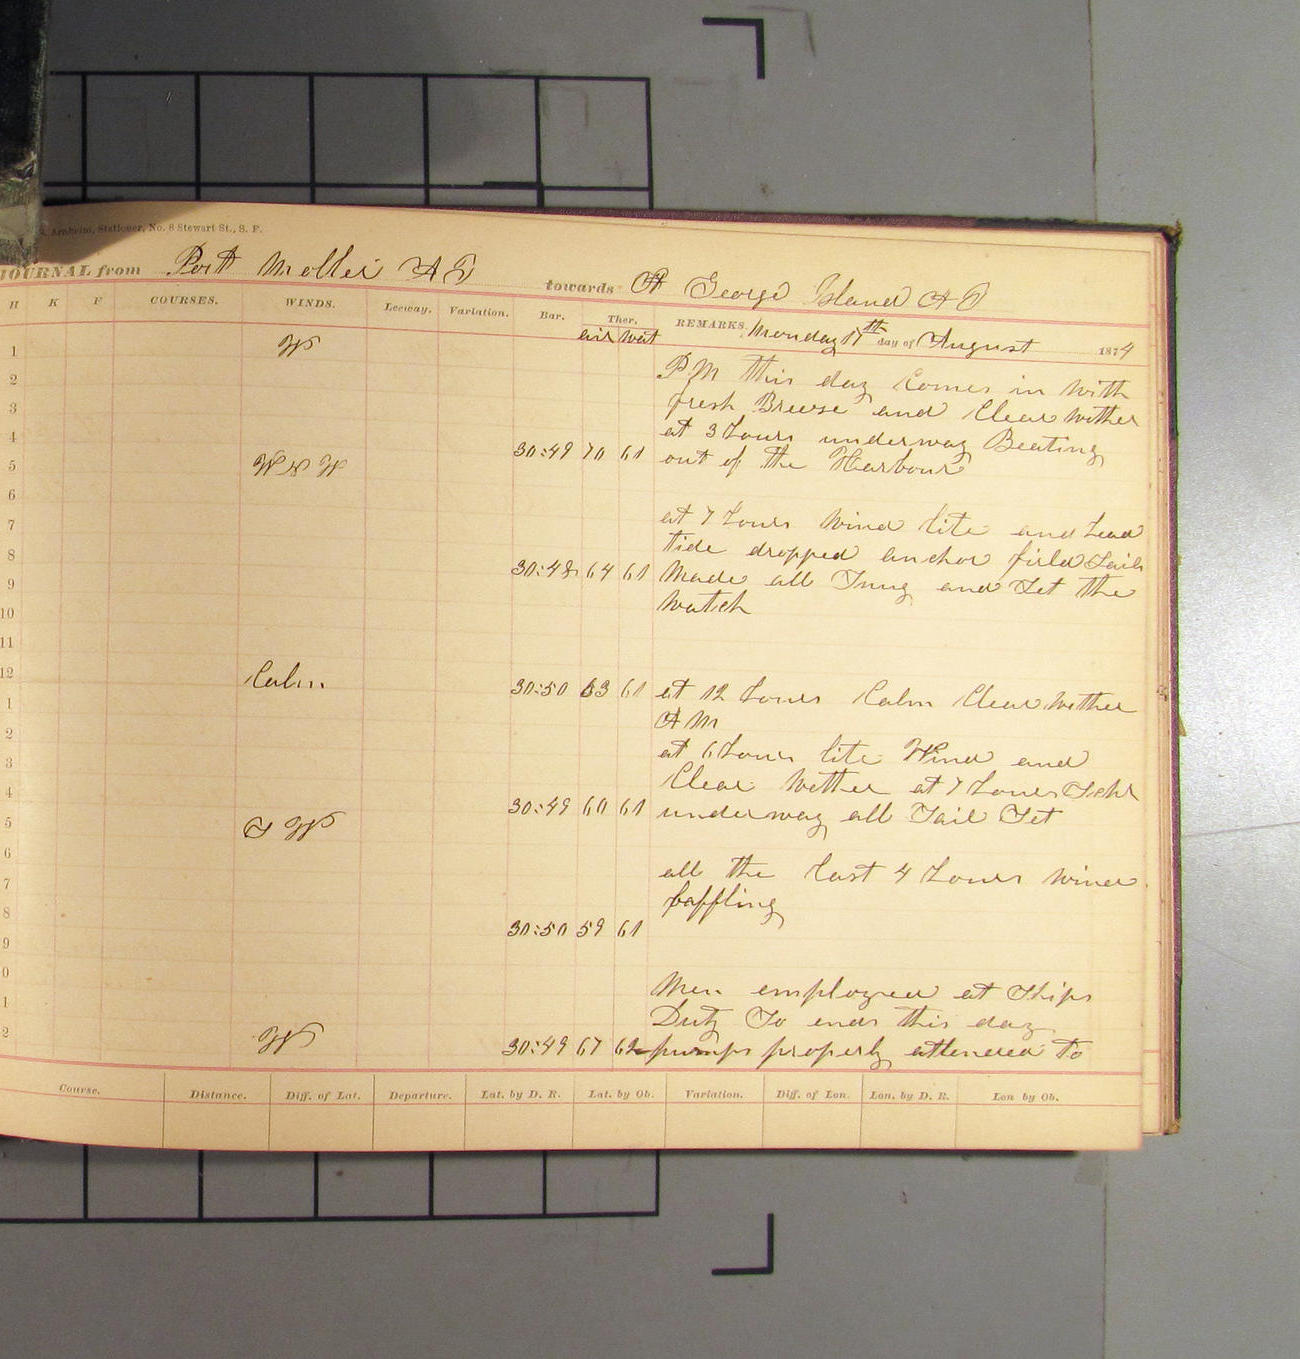 Arnheim, Stationer, No. 8 Stewart St., S. F.
JOURNAL from Port Moller A T towards St George Island A T
H K F COURSES. WINDS. Leeway. Variation. Bar. Ther. REMARKS. Monday 17th day of August 1874
air wat
1 W
2 P M this day Comes in With
3 fresh Breese and Clear wether
4 at 3 hours underway Beating
30:49 70 61 out of the Harbour
5 W N W
6
7 at 7 hours Wind lite and head
8 tide dropped anchor furld Sails
30:48 64 61 Made all Snug and Set the
9 Watch
10
11
12 Calm 30:50 63 61 at 12 hours Calm Clear Wether
1 A M
2 at 6 hours lite Wind and
3 Clear Wether at 7 hours Schr
4 30:49 60 61 underway all Sail Set
5 S W
6 all the last 4 hours Wind
7 baffling
8 30:50 59 61
9
0 Men employed at Ships
1 Duty So ends this day
2 W 30:49 67 62 pumps properly attended to
Course. Distance. Diff. of Lat. Departure. Lat. by D. R. Lat. by Ob. Variation. Diff. of Lon. Lon. by D. R. Lon by Ob.